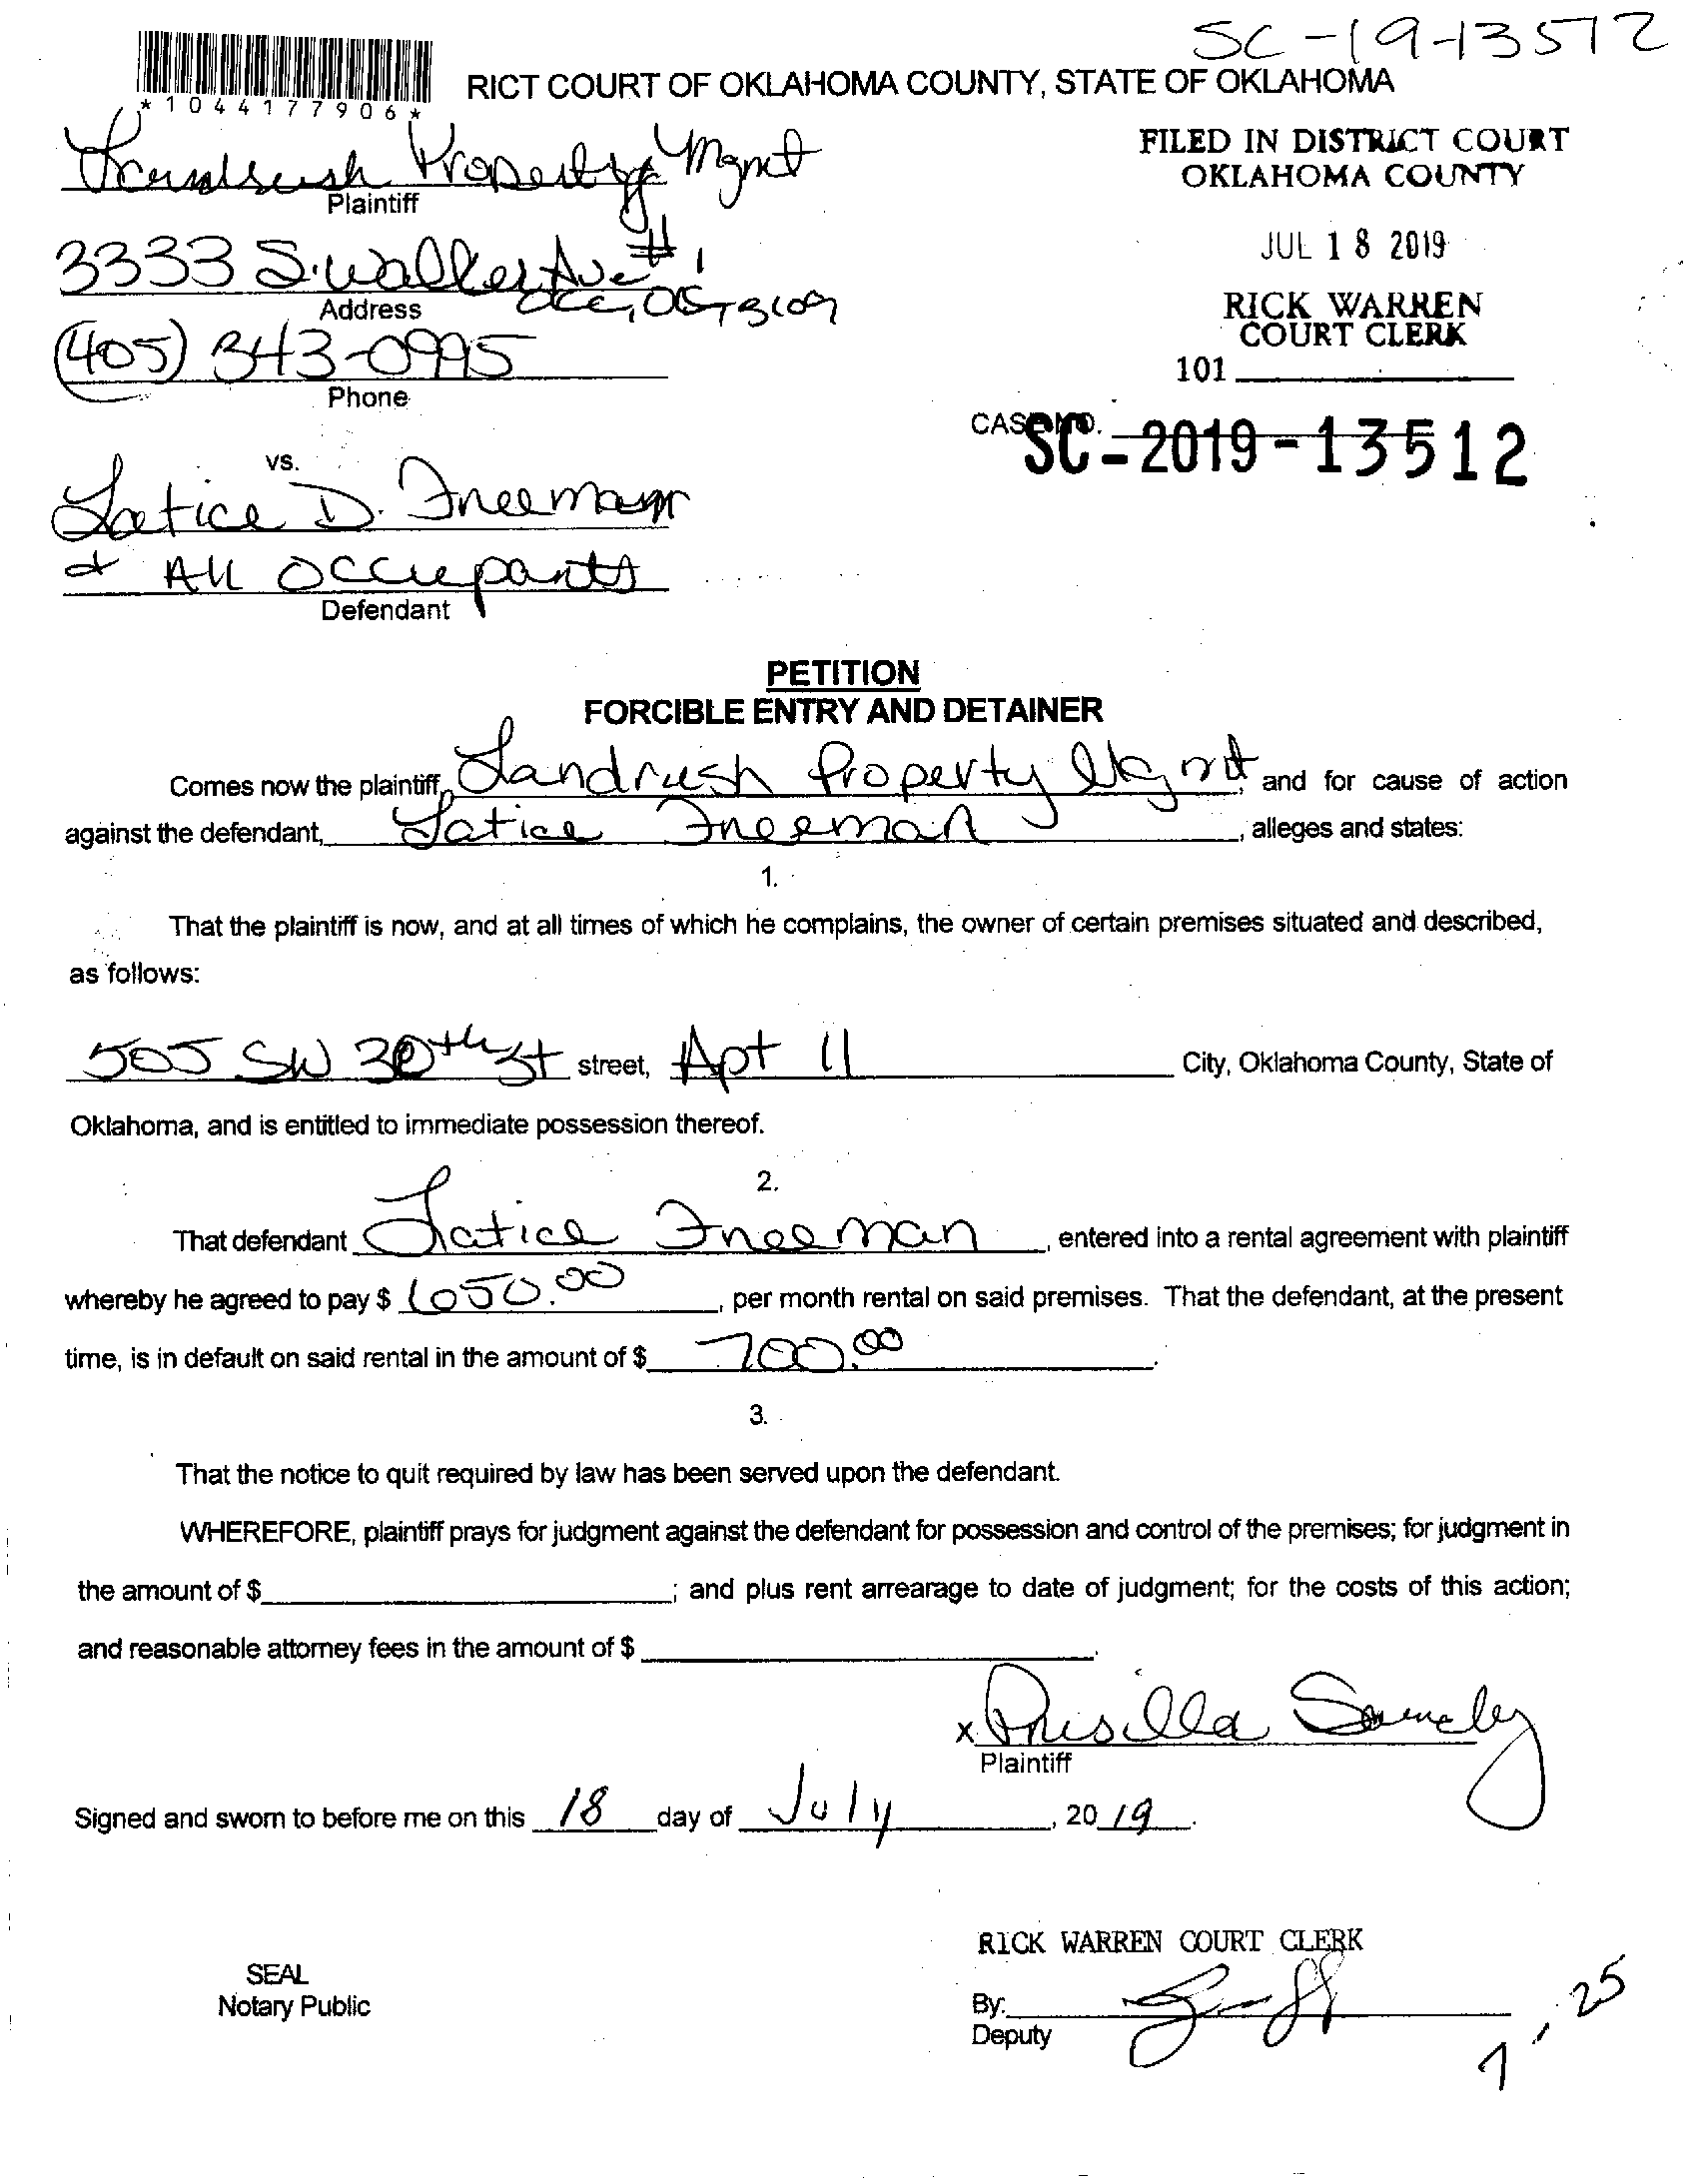 SC-19-13512
*1044177906*
RICT COURT OF OKLAHOMA COUNTY, STATE OF OKLAHOMA
Landrush Property Mgmt
Plaintiff
3333 S. Walker Ave #1
Address
OKC, OK 73109
(405) 343-0995
Phone
FILED IN DISTRICT COURT
OKLAHOMA COUNTY
JUL 18 2019
RICK WARREN
COURT CLERK
101
CASE NO. SC-2019-13512
vs.
Latice D. Freeman
& All Occupants
Defendant
PETITION
FORCIBLE ENTRY AND DETAINER
Comes now the plaintiff, Landrush Property Mgmt, and for cause of action
against the defendant, Latice Freeman, alleges and states:
1.
That the plaintiff is now, and at all times of which he complains, the owner of certain premises situated and described,
as follows:
505 SW 30th St street, Apt 11 City, Oklahoma County, State of
Oklahoma, and is entitled to immediate possession thereof.
2.
That defendant Latice Freeman, entered into a rental agreement with plaintiff
whereby he agreed to pay $ 650.00, per month rental on said premises. That the defendant, at the present
time, is in default on said rental in the amount of $ 700.00.
3.
That the notice to quit required by law has been served upon the defendant.
WHEREFORE, plaintiff prays for judgment against the defendant for possession and control of the premises; for judgment in
the amount of $ ; and plus rent arrearage to date of judgment; for the costs of this action;
and reasonable attorney fees in the amount of $ .
x Prisilla
Plaintiff
Signed and sworn to before me on this 18 day of July, 2019.
RICK WARREN COURT CLERK
SEAL
Notary Public
By:
Deputy
7, 25